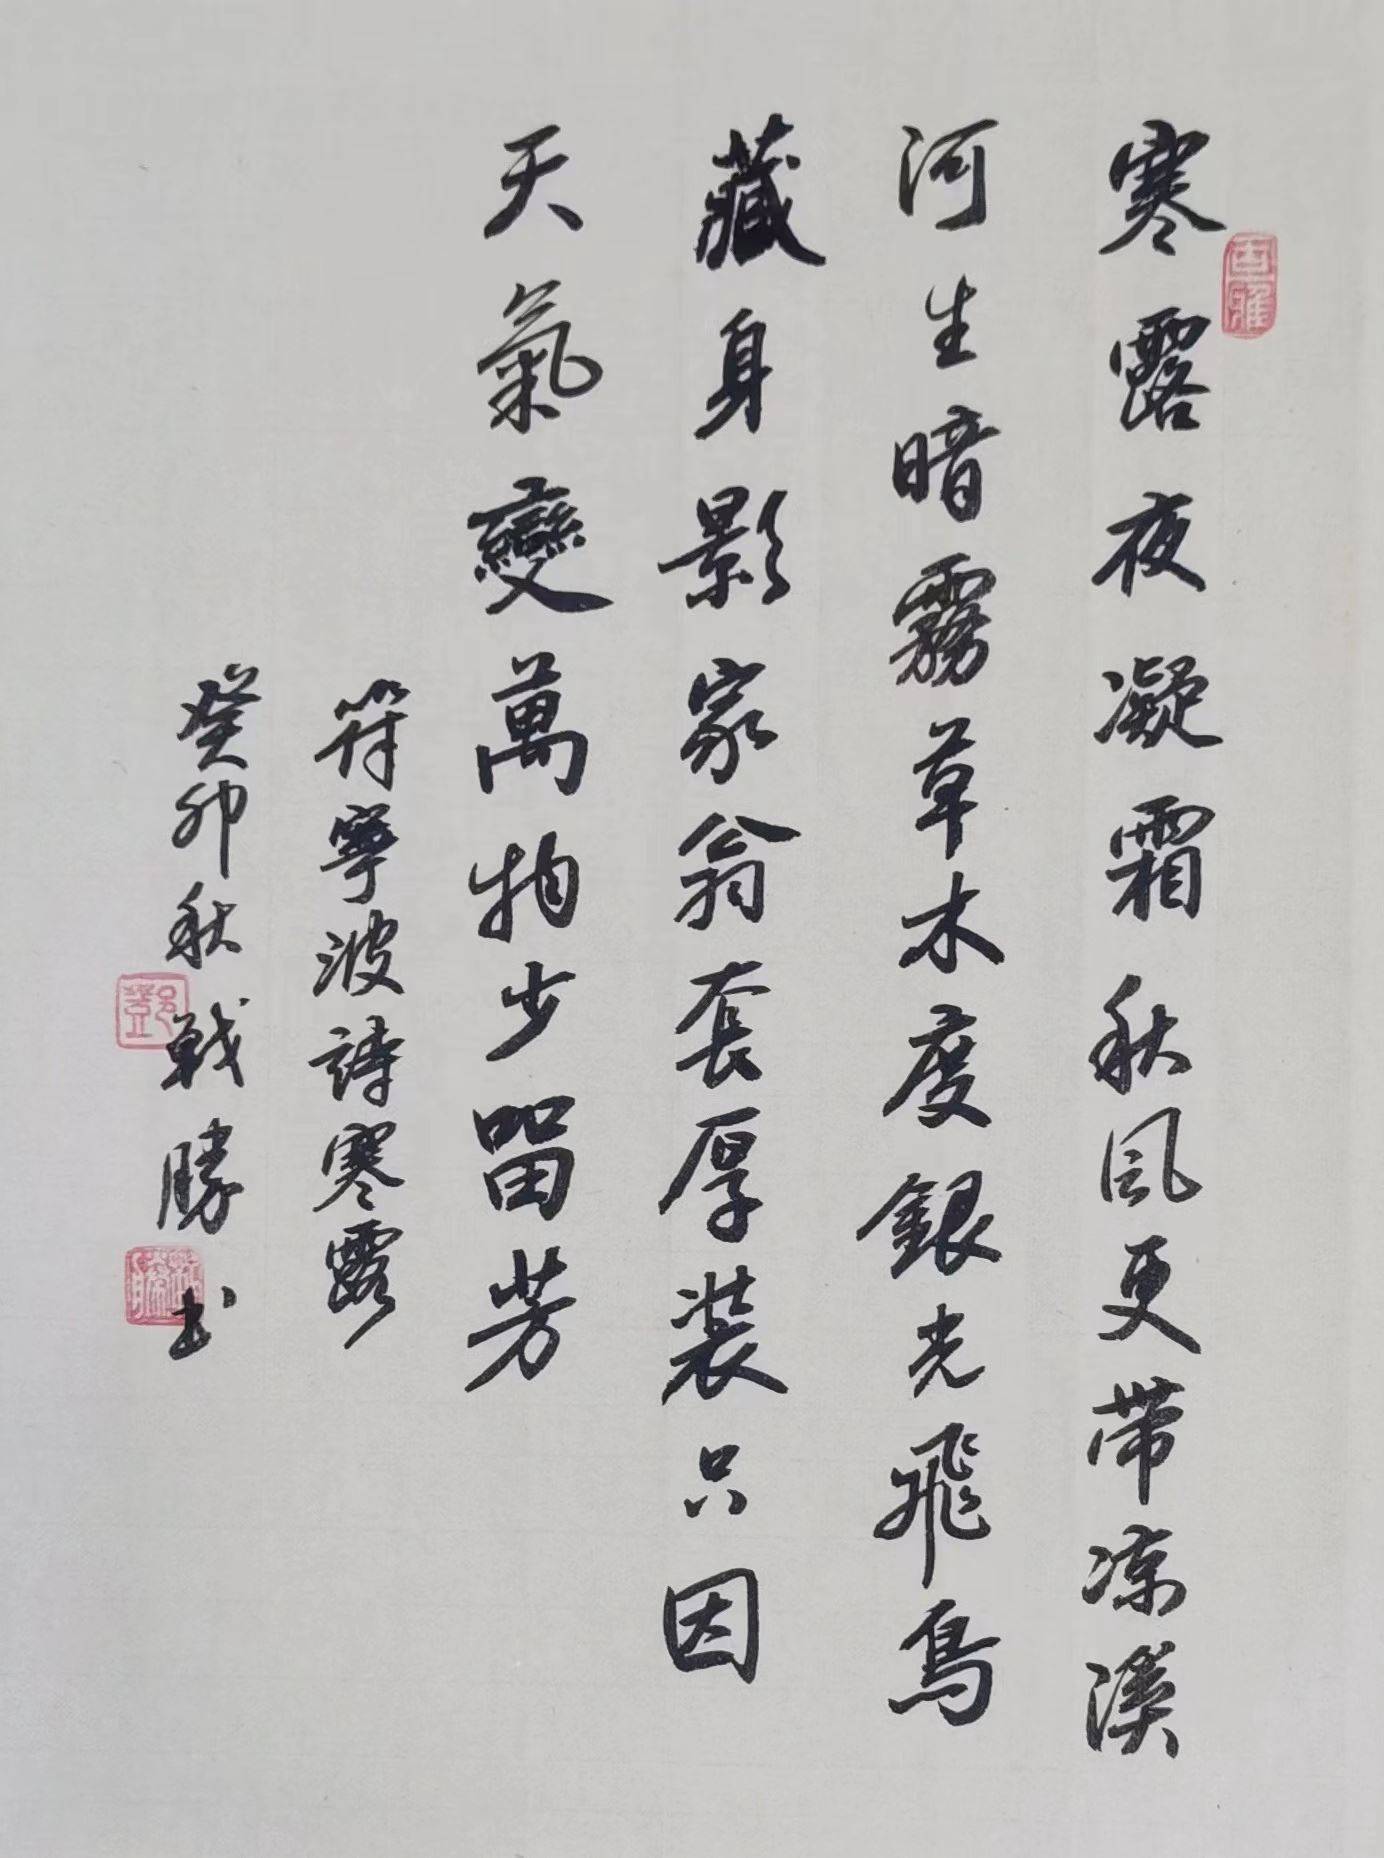 寒露夜凝霜秋风更带凉溪
河生暗霧草木度銀光飛鳥
藏身影家翁套厚装只因
天氣變萬物少留芳
符寧波詩寒露
癸卯秋戰勝书
古雅
鄧
戰勝